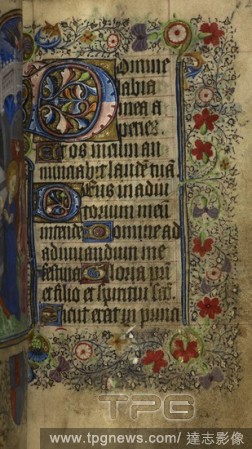 Domine
labia
mea a
peries
Et os meum an
nunciabit laudē tuā
Deus in adiu
torium meū
intende Domine ad
adiuuandum me
festina Gloria pri
et filio et spiritui sco
Sicut erat in princi
TPG
www.tpgnews.com/ 達志影像